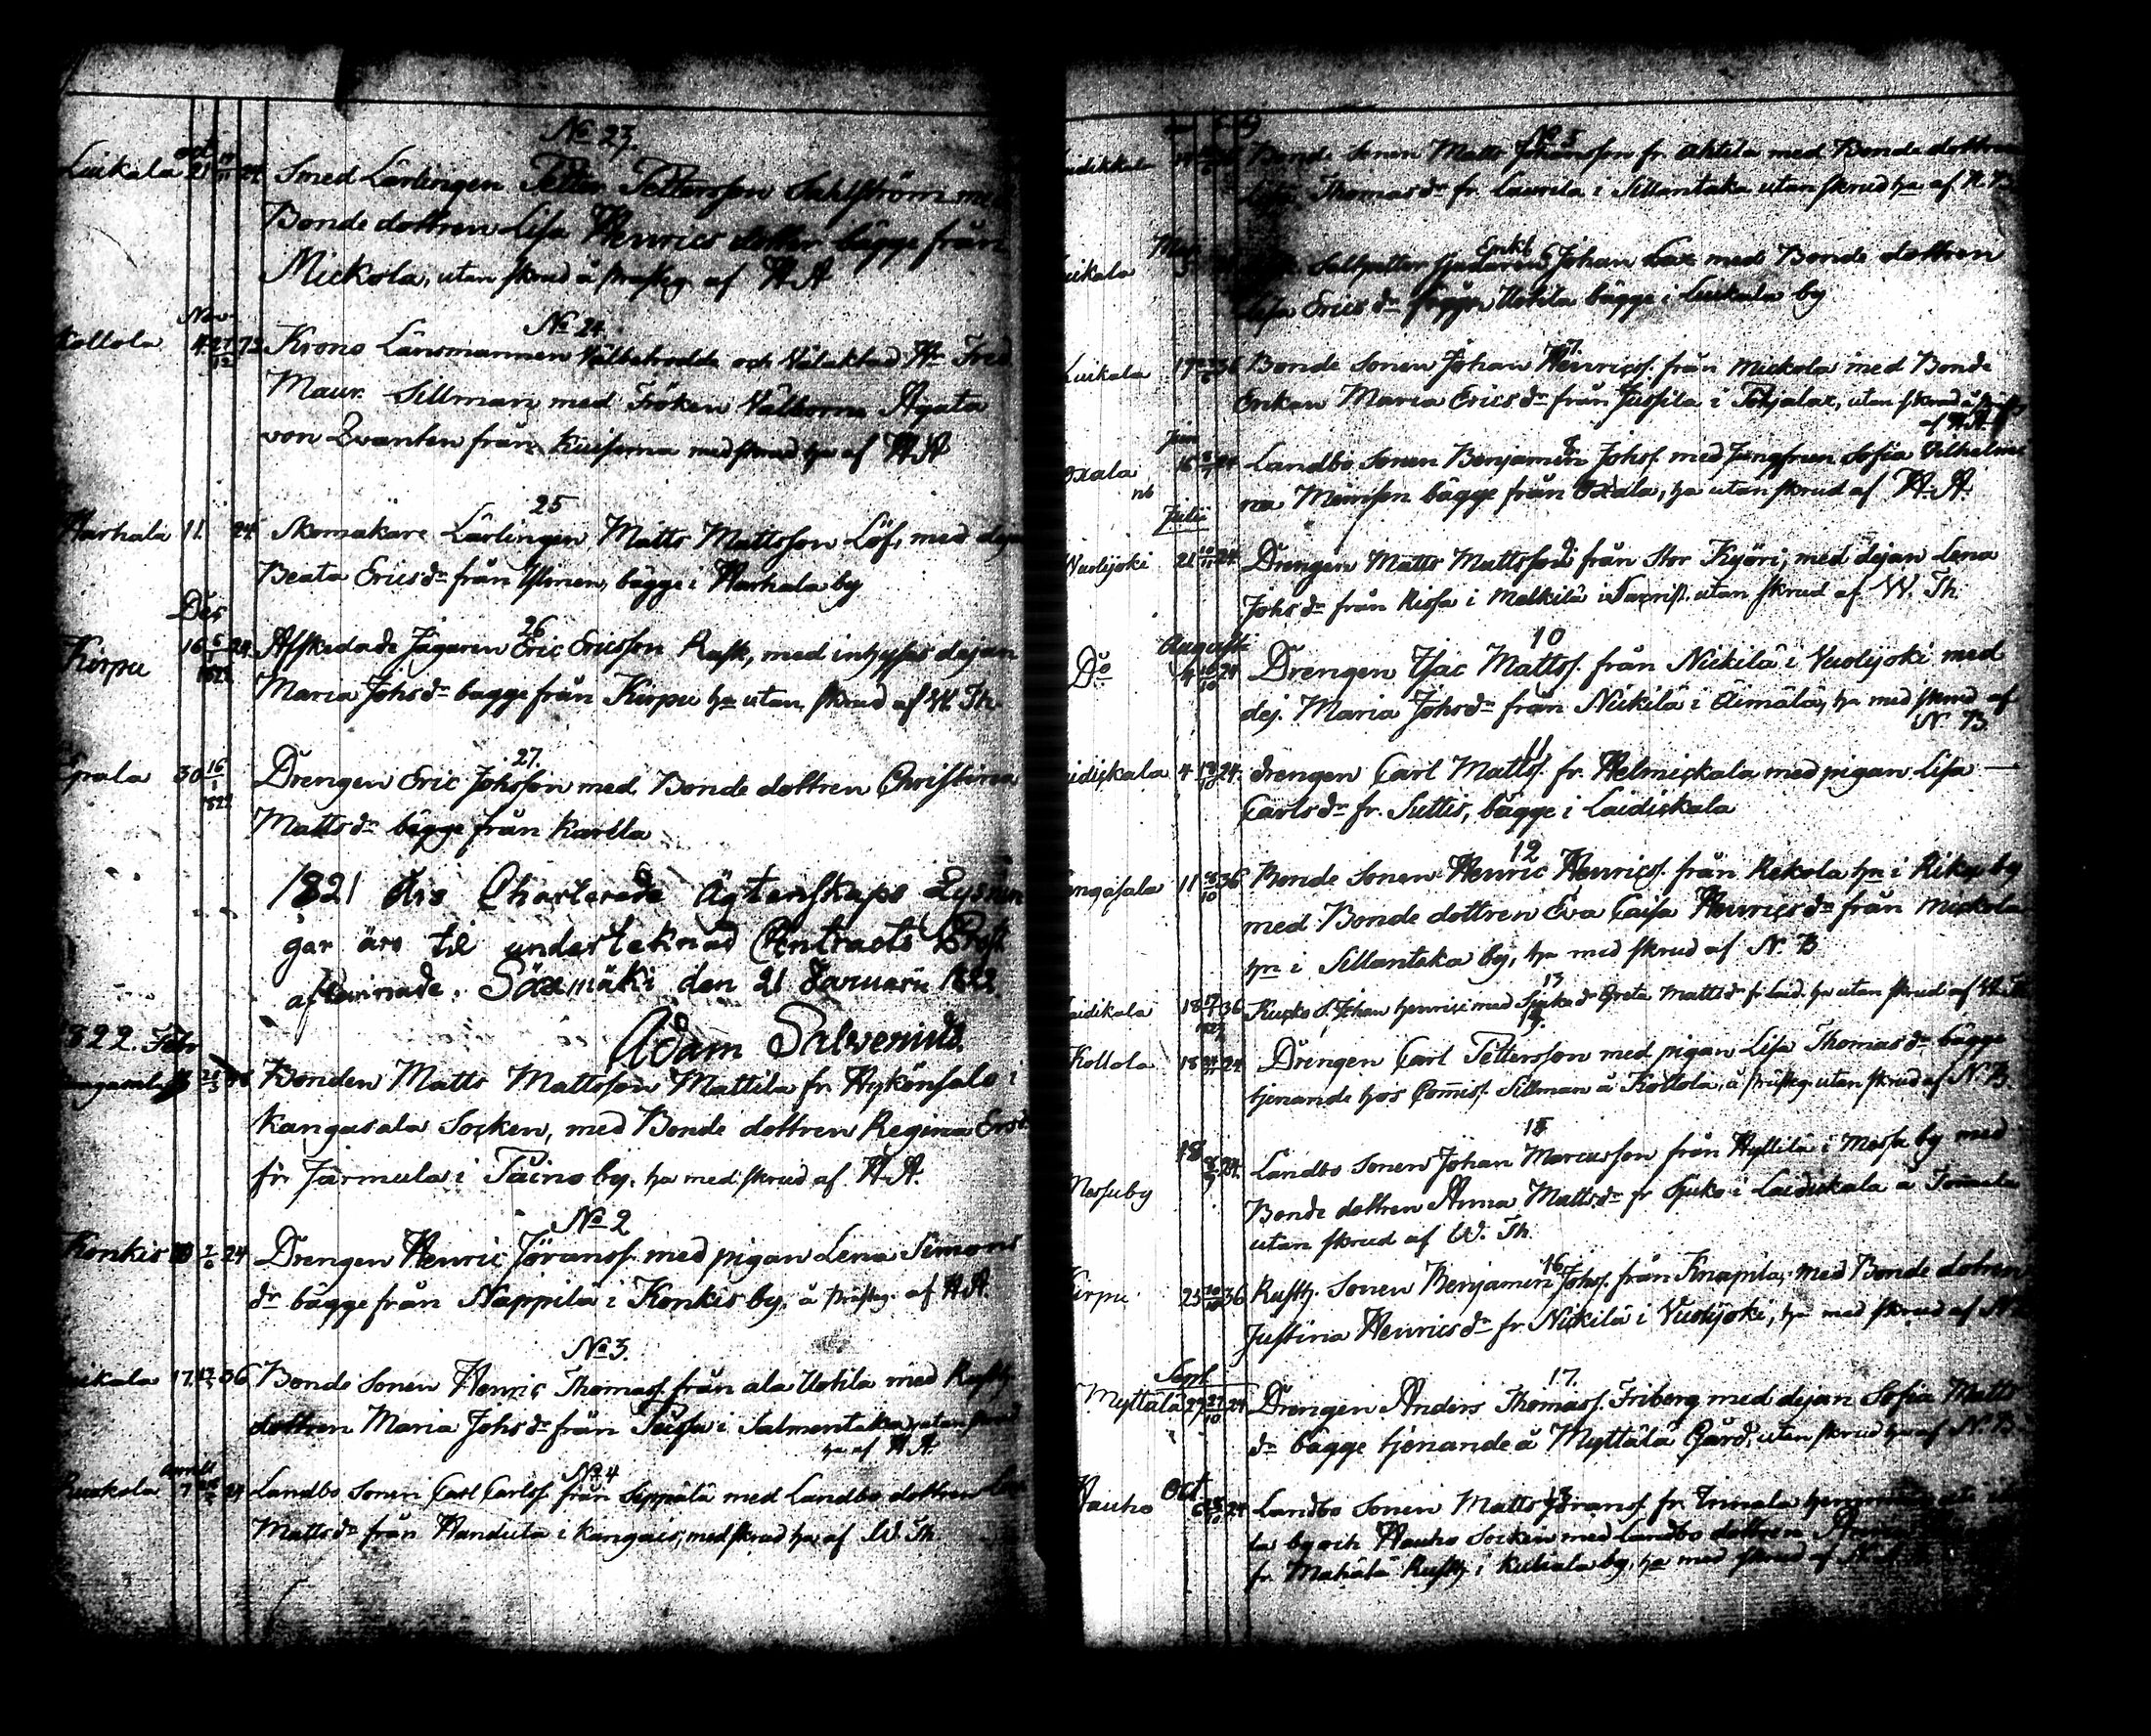 No 23.
Luikala Oct 21 24 Smed Lärlingen Petter Pettersson Sahlström med
Bonde dottren Lisa Henrics dotter bägge från
Mickola, utan skrud å prästg. af HA
Nov
Kottola 4 27/12 72 No 24
Krono Länsmannen Välbetrodde och Välaktad Hr Fred
Maur. Sillman med Fröken Välborna Agata
von Qvanten från Kuiserna med skrud hä af HA
25
Harhala 11. 24 Skomakare Lärlingen Matts Mattsson Löf, med dejan
Beata Ericsdr från Ylinen, bägge i Harhala by
Dec
26
Kirpu 16 6/1 1822 24. Afskedade Jägaren Eric Ericsson Rask, med inhyses dejan
Maria Johsdr bägge från Kirpu hä utan skrud af W. Th.
27.
30 16/1 1822 Drengen Eric Johsson med Bonde dottren Christina
Mattsdr bägge från Kartla
1821 års Charterade Ägtenskaps Lysnin
gar äro til underteknad Contracts Prost
aflevirade. Sääxmäki den 21 Januarii 1822.
Adam Salvenius.
1822. Febr
Bonden Matts Mattsson Mattila fr. Hykönsalo i
Kangasala Socken, med Bonde dottren Regina Ersd
fr. Jarmula i Paino by, hä med skrud af HA.
No 2
Konkis 24 Drengen Henric Jöranss. med pigan Lena Simons
dr bägge från Nappilä i Konkis by, å prästg. af HA.
No 3.
17. 36 Bonde Sonen Henric Thomass. från ala Uotila med Rusth.
dottren Maria Johsdr från Pusa i Salmentaka, utan skrud
hä af HA
Aprill
No 4
7 24 Landbo Sonen Carl Carlss. från Seppälä med Landbo dottren
Mattsdr från Handula i Kangais, med skrud hä af W. Th
No 5
Bonde Sonen Matts Johansson fr. Ahtila med Bonde dottren
Lisa Thomasdr fr. Laurila i Sillantaka utan skrud hä af N.B.
Maj
Enkl. 6
Saltpetter Sjudaren Johan Lax med Bonde dottren
Lisa Ericsdr Uotila bägge i Luikala by
7
Luikala 17 36 Bonde Sonen Johan Henricss. från Mickola med Bonde
Enkan Maria Ericsdr från Jussila i Pohjalax, utan skrud å prästg
af HA
Juni
8
16 24 Landbo Sonen Benjamin Johss. med Jungfrun Sofia Vilhelmi
na Meinson bägge från Oxala, hä utan skrud af H.A.
Julii
9
Vuolijoki 21 24 Drengen Matts Mattsson från Stor Kyöri, med dejan Lena
Johsdr från Kissa i Metkilä utan skrud af W. Th.
Augusti
10
Do 4 18/10 24 Drengen Isac Mattss. från Nickilä i Vuolijoki med
dej. Maria Johsdr från Nickilä i Äimälä, hä med skrud af
N B.
11
4 18/10 24. Drengen Carl Mattss. fr. Helmickala med pigan Lisa —
Carlsdr fr. Suttis, bägge i Laidickala
12
11 6/10 36 Bonde Sonen Henric Henricss. från Rekola hn i Riku by
med Bonde dottren Eva Caisa Henricsdr från Mickola
hn i Sillantaka by, hä med skrud af N. B
13
18 17/ 1823 36 Kusko S. Johan Henrici med Greta Mattsdr fr. Laid. hä utan skrud af W. Th
14
Kottola 18 24 Drengen Carl Pettersson med pigan Lisa Thomasdr bägge
tjenande hos Comiss. Sillman å Kottola, å prästg. utan skrud af N. B
15
18 24. Landbo Sonen Johan Marcusson från Hyttilä i Messu by med
Messuby Bonde dottren Anna Mattsdr fr Sjuko i Laidickala å Tomala
utan skrud af W. Th.
16
25 20/10 36 Rusth. Sonen Benjamin Johss. från Knapila, med Bonde dottren
Justina Henricsdr fr. Nickilä i Vuolijoki, hä med skrud af N
Sept.
17.
Myttälä 29 27/10 24 Drengen Anders Thomass. Friberg med dejan Sofia Matts
dr bägge tjenande å Myttälä Gård, utan skrud hä af N. B
Oct
Hauho 6 24 Landbo Sonen Matts Joranss. fr.
by och Hauho Socken med Landbo dottren Anna
fr. Mahälä Rusth. i by, hä med skrud af N.